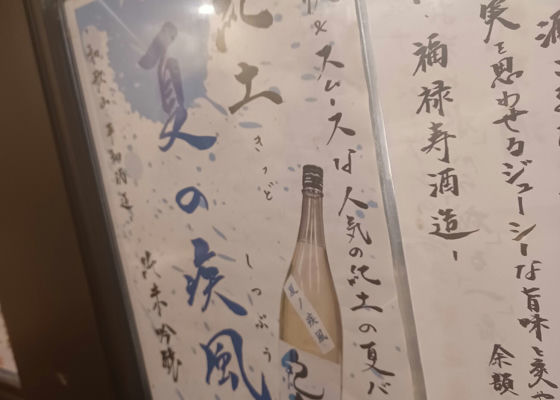 福禄寿酒造
実を思わせるジューシーな旨味と爽や
余韻
&スムースな人気の紀土の夏バ
紀土
きっど
夏の疾風
しっぷう
純米吟醸
夏ノ疾風
紀